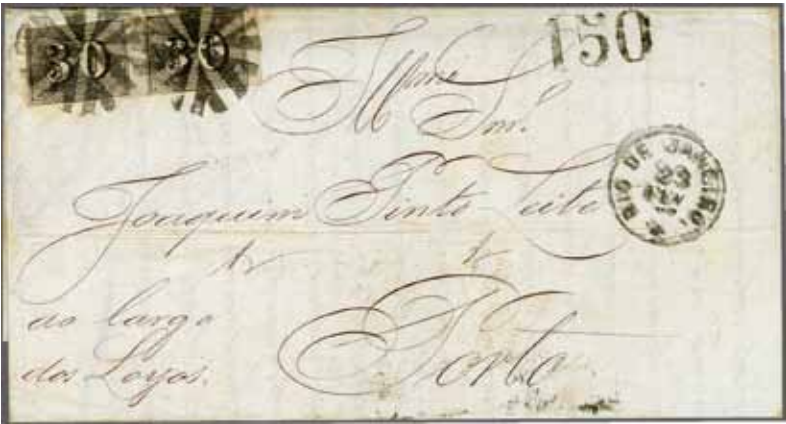 30 30
150
Illmo
Snr.
RIO DE JANEIRO.
23
Joaquim Pinto Leite
ao largo
dos Loyos.
Porto.